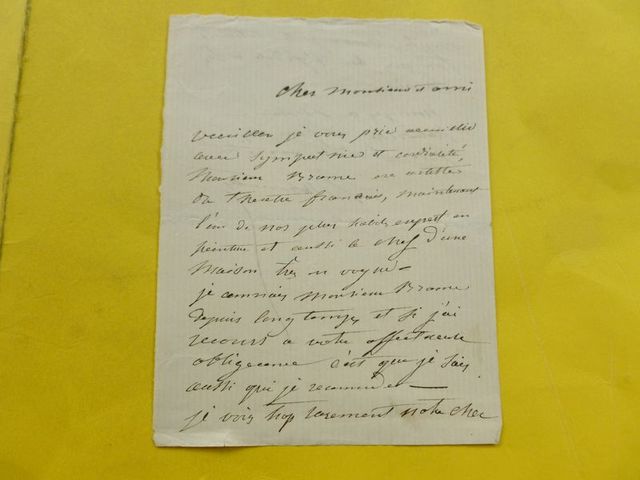 cher monsieur et ami
veuillez je vous prie accueillir
avec sympathie et cordialité,
Monsieur Brame ex artiste
du theatre francais, maintenant
l'un de nos plus habiles expert en
peinture et aussi le chef d'une
maison très en vogue—
je connais Monsieur Brame
depuis longtemps, et si j'ai
recours a votre affectueuse
obligeance c'est que je sais
aussi qui je recommande—
je vois trop rarement notre cher